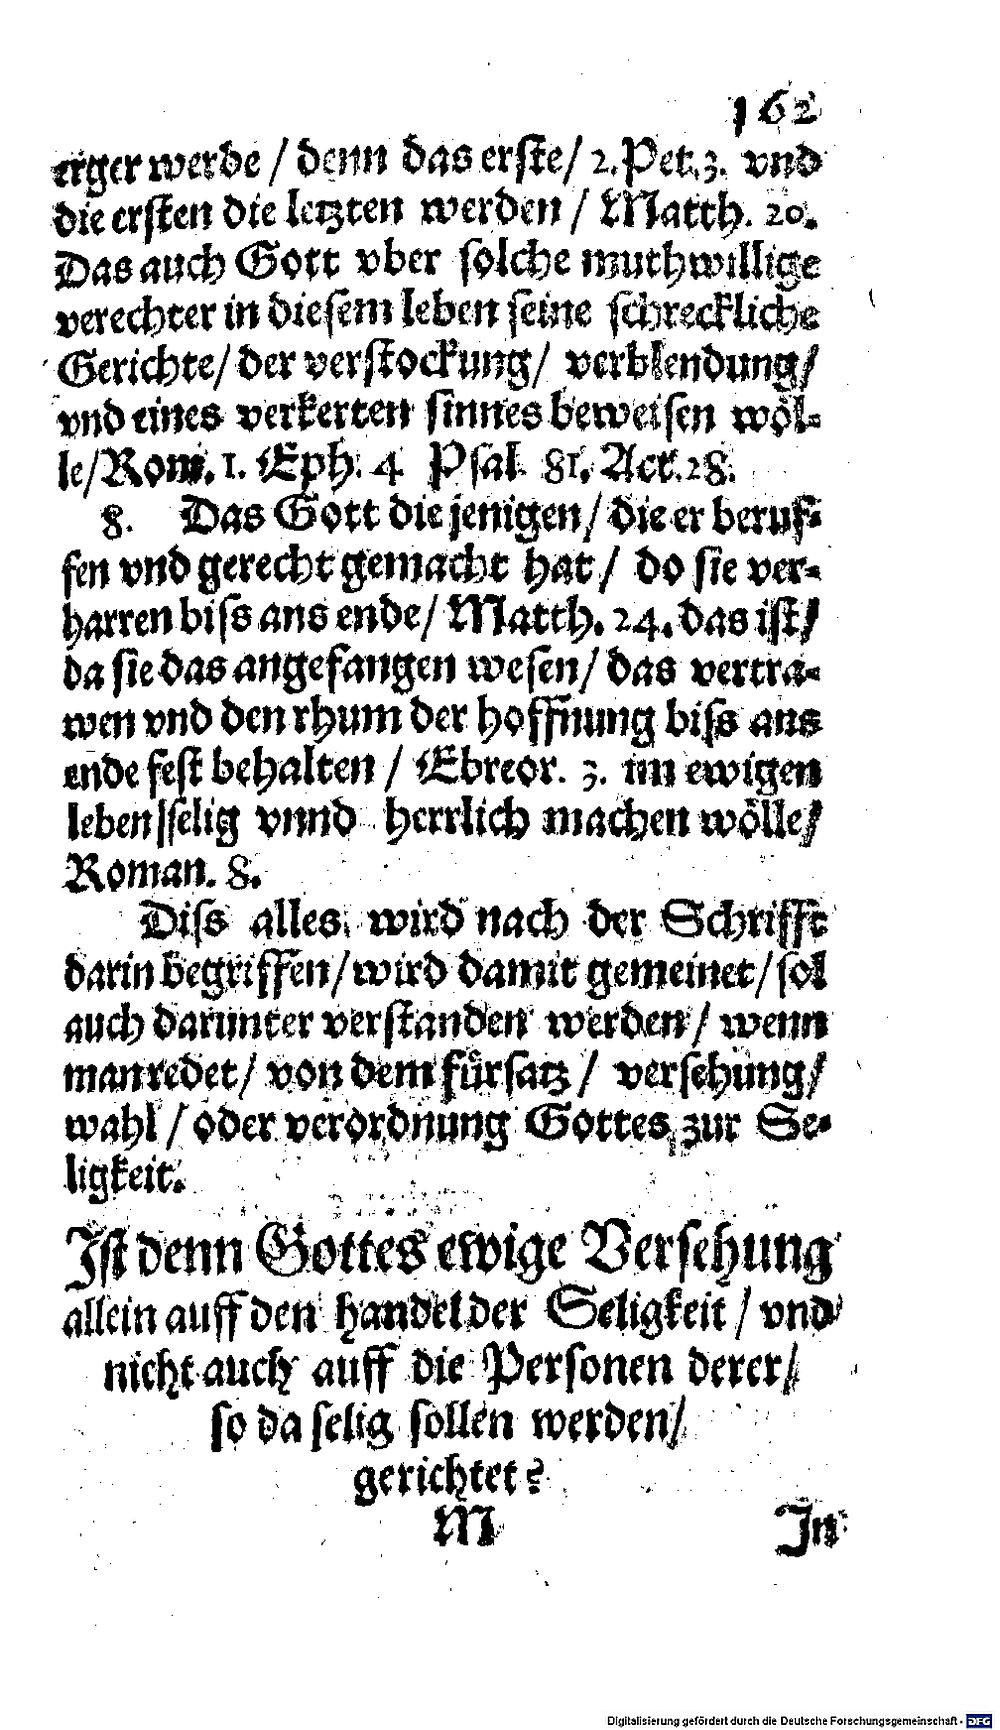 162
erger werde / denn das erste / 2. Pet. 3. vnd
die ersten die letzten werden / Matth. 20.
Das auch Gott vber solche muthwillige
verechter in diesem leben seine schreckliche
Gerichte / der verstockung / verblendung /
vnd eines verkerten sinnes beweisen wöl-
le / Rom. 1. Eph. 4 Psal. 81. Act. 28.
8. Das Gott die jenigen / die er beruf-
fen vnd gerecht gemacht hat / do sie ver-
harren biss ans ende / Matth. 24. das ist /
da sie das angefangen wesen / das vertra-
wen vnd den rhum der hoffnung biss ans
ende fest behalten / Ebreor. 3. im ewigen
leben selig vnnd herrlich machen wölle /
Roman. 8.
Diss alles wird nach der Schrifft
darin begriffen / wird damit gemeinet / sol
auch darunter verstanden werden / wenn
man redet / von dem fürsatz / versehung /
wahl / oder verordnung Gottes zur Se-
ligkeit.
Ist denn Gottes ewige Versehung
allein auff den handel der Seligkeit / vnd
nicht auch auff die Personen derer /
so da selig sollen werden /
gerichtet?
M
In
Digitalisierung gefördert durch die Deutsche Forschungsgemeinschaft - DFG